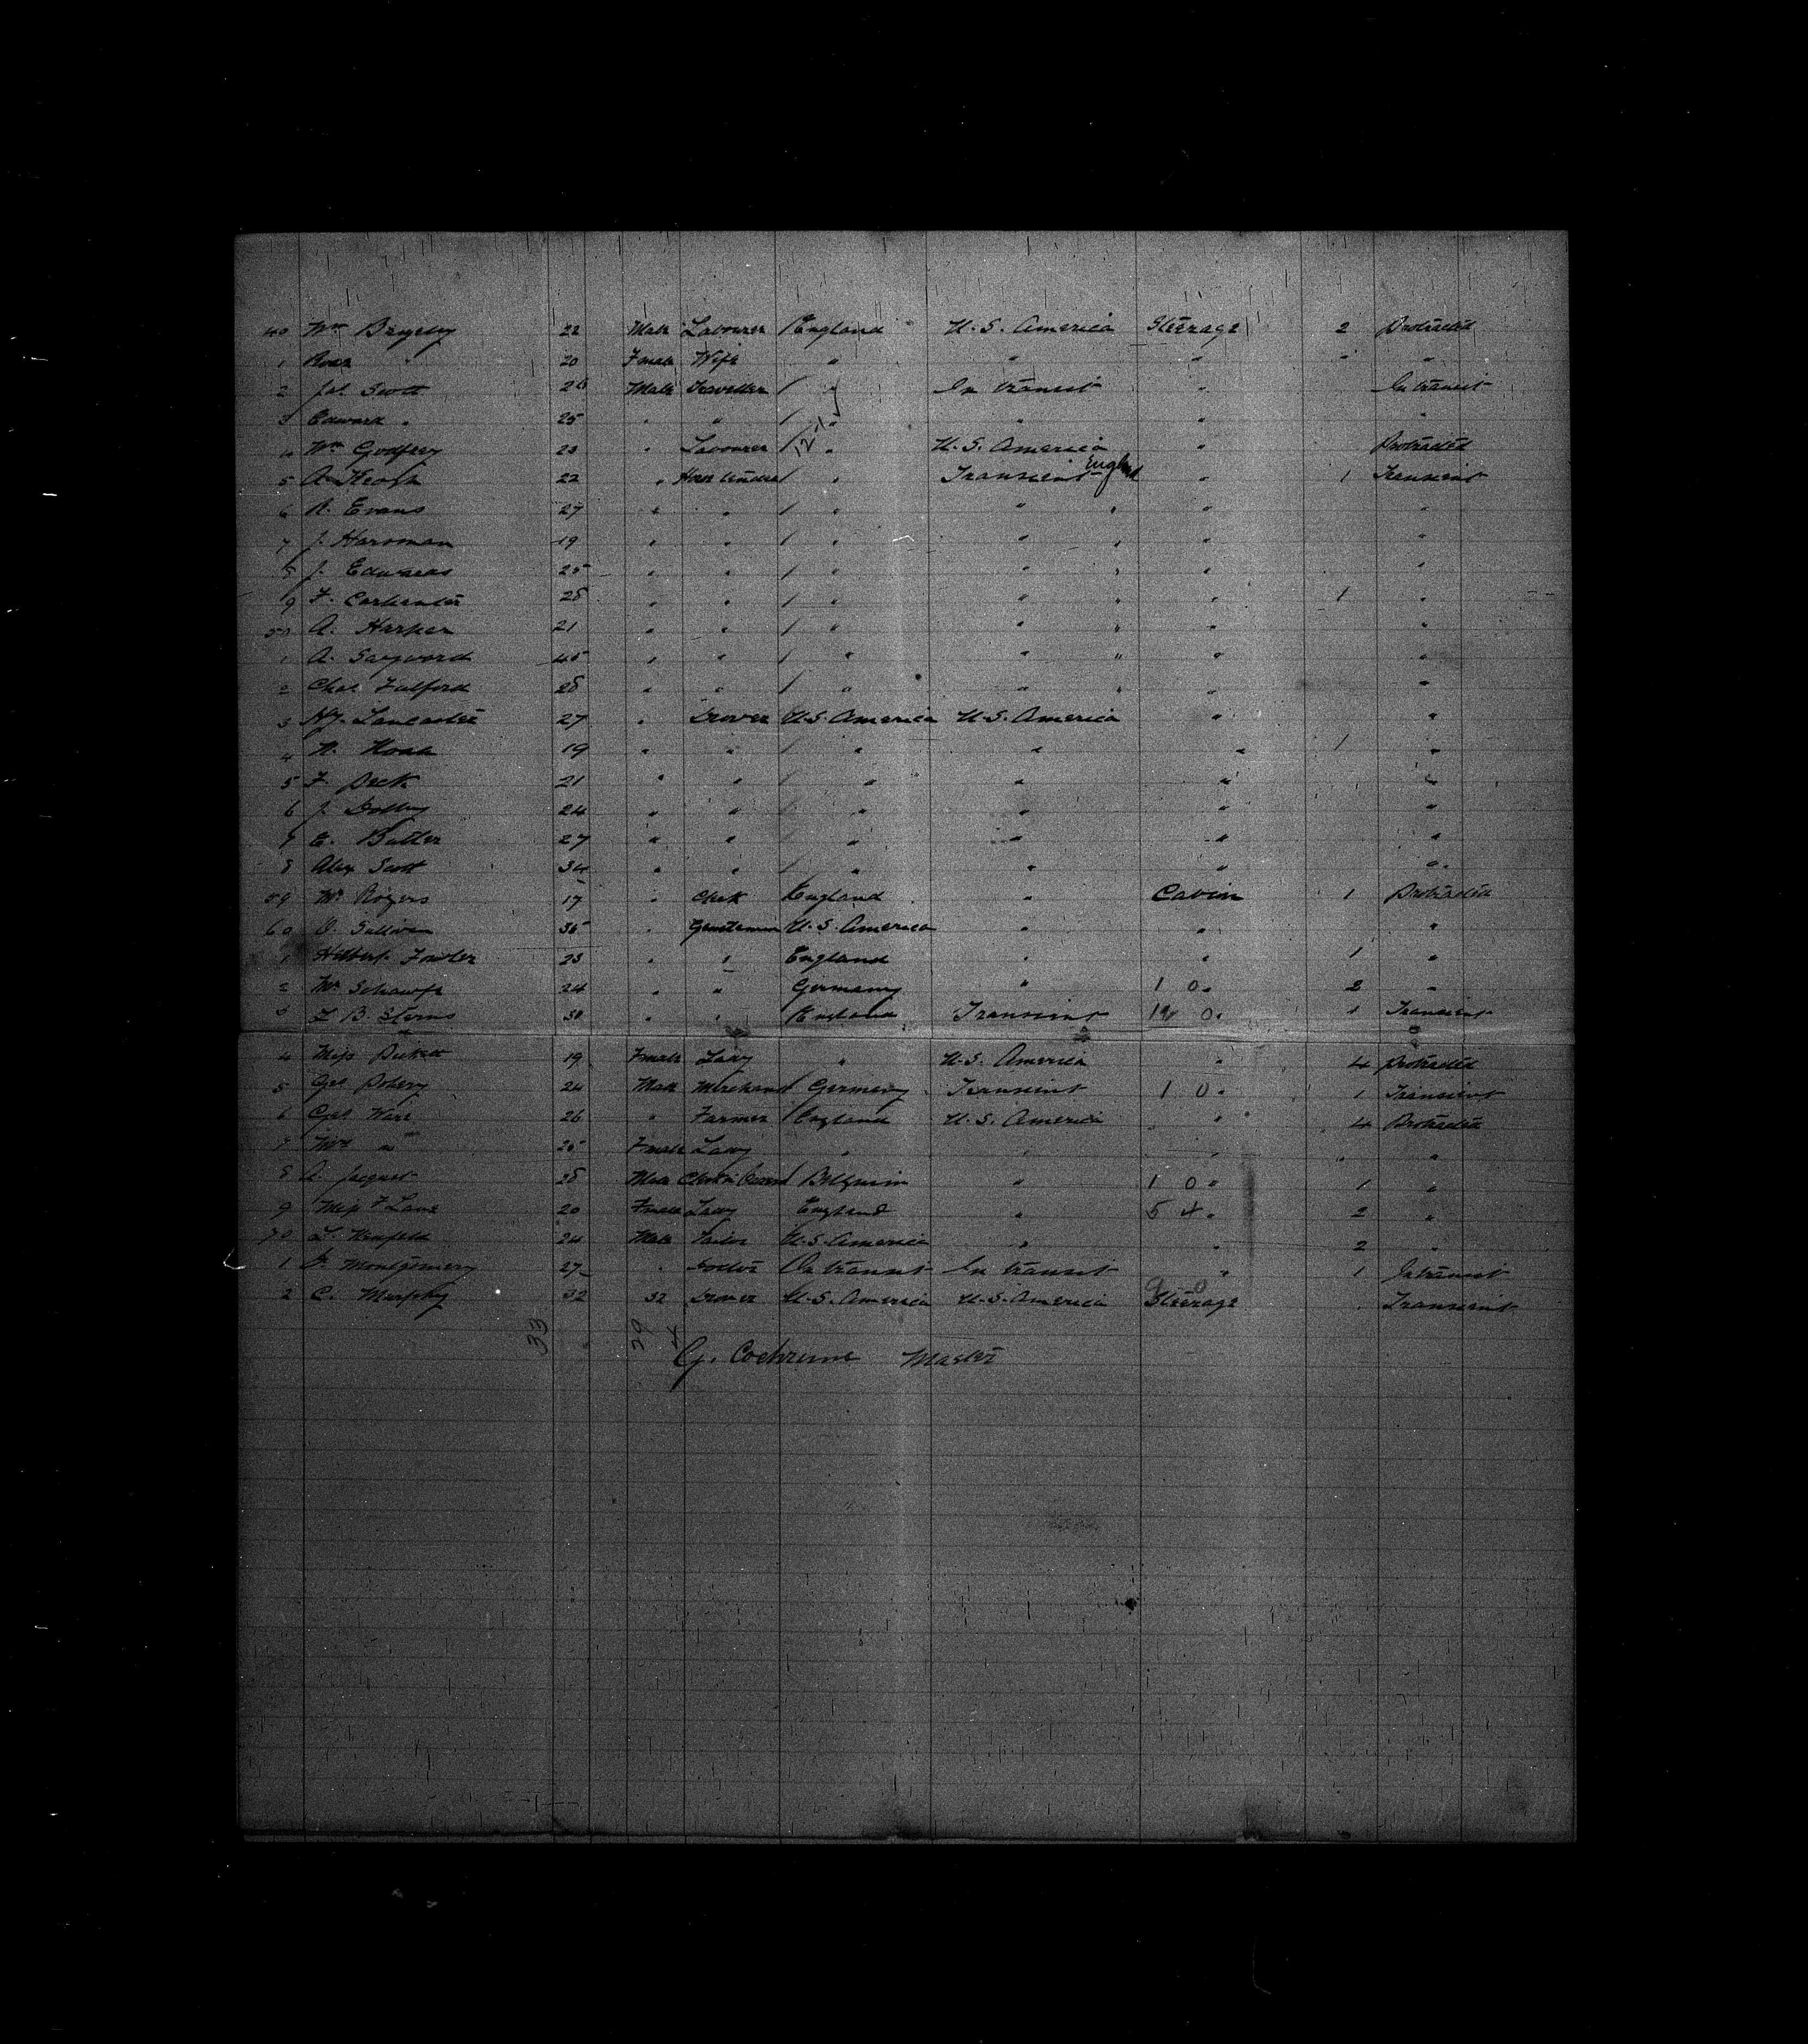 40 Wm 22 Male Labourer England U.S. America Steerage 2 Protracted
1 Rosa " 20 Fmale Wife " " " " "
2 Jas. Scott 26 Male Traveller " In transit " In transit
3 Edward " 25 " " " " " "
4 Wm Godfrey 23 " Labourer " U.S. America " Protracted
5 A. 22 " " Transient England " 1 Transient
6 R. Evans 27 " " " " " " "
7 J. Harsman 19 " " " " " " "
8 J. Edwards 25 " " " " " " "
9 F. Carpenter 28 " " " " " " 1 "
50 A. Harper 21 " " " " " " "
1 A. Saywood 45 " " " " " " "
2 Chas Fulford 28 " " " " " " "
3 Hy. Lancaster 27 " Drover U.S. America U.S. America " "
4 19 " " " " " 1 "
5 F. Peck 21 " " " " " "
6 J. 24 " " " " " "
7 E. Butler 27 " " " " " "
8 Alex Scott 34 " " " " " "
59 Mr Rogers 17 " Clerk England " Cabin 1 Protracted
60 O. Sullivan 35 " Gentleman U.S. America " " "
1 Fowler 23 " " England " " 1 "
2 Mr 24 " " Germany " 1 0 " 2 "
3 B. Sterns 30 " " England Transient 0 " 1 Transient
4 Miss 19 Fmale Lady " U.S. America " 4 Protracted
5 Geo 24 Male Merchant Germany Transient 1 0 " 1 Transient
6 Geo. Ware 26 " Farmer England U.S. America " 4 Protracted
7 Mrs " 25 Fmale Lady " " " " "
8 A. Jacques 28 Male Belgium " 1 0 " 1 "
9 Miss F Lane 20 Fmale Lady England " 5 4 " 2 "
70 24 Male Tailor U.S. America " " 2 "
1 Montgomery 27 " Doctor In transit In transit " 1 In transit
2 C. Murphy 32 32 Drover U.S. America U.S. America Steerage " Transient
33 29 4
G. Cochrane Master